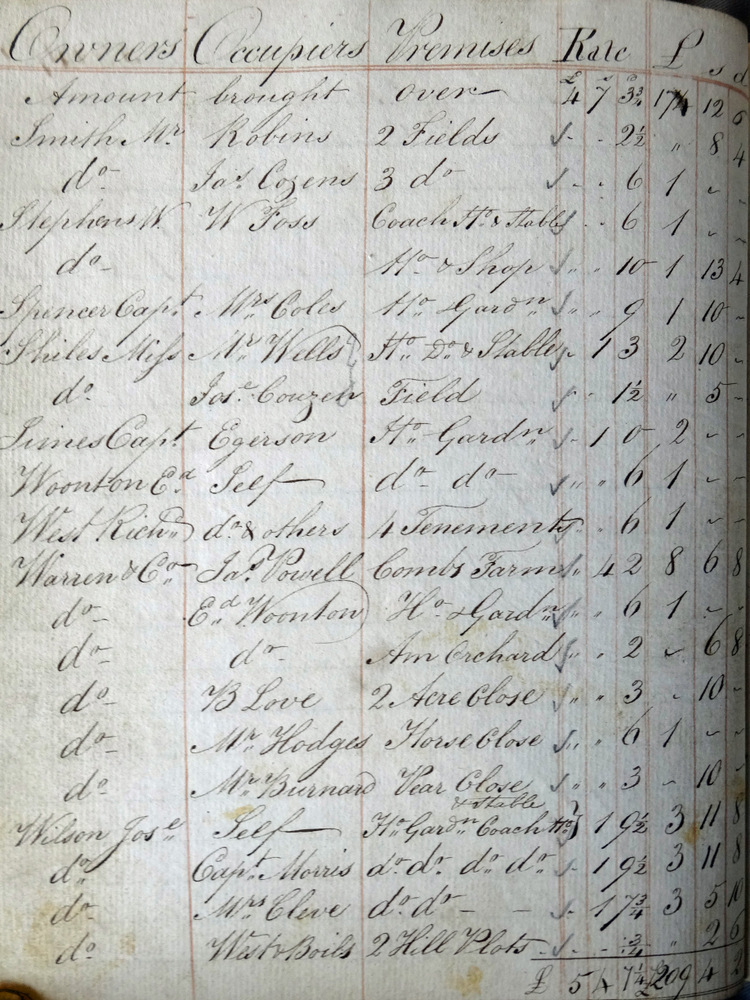 Owners Occupiers Premises Rate £ s d
£ s D
Amount brought over 4 7 3¾ 12 6
Smith Mr Robins 2 Fields - - 2½ " 8 4
do Jas Cozens 3 do - - 6 1 - -
Stephens W W Foss Coach Ho & Stable - - 6 1 - -
do Ho & Shop " " 10 1 13 4
Spencer Capt Mrs Coles Ho Gardn " " 9 1 10 -
Mr Wells Ho Do & Stable - 1 3 2 10 -
do Jose Couzen Field - - 1½ " 5 -
Simes Capt Egerson Ho Gardn - 1 0 2 - -
Woonton Ed Self do do " " 6 1 - -
West Richd do & others 4 Tenements - 6 1 - -
Warren & Co Jas Powell Combs Farm - 4 2 8 6 8
do Ed Woonton Ho & Gardn " " 6 1 - -
do do Orchard " " 2 - 6 8
do B Love 2 Acre Close " " 3 - 10 -
do Mr Hodges Horse Close " " 6 1 - -
do Mr Burnard Close " " 3 - 10 -
& Stable
Wilson Jose Self Ho Gardn Coach Ho 1 9½ 3 11 8
do Capt Morris do do do do - 1 9½ 3 11 8
do Mrs Cleve do do - - - 1 7¾ 3 5 10
do West & Boils 2 Hill Plots - - ¾ " 2 6
£ 5 4 7¼ £209 4 2